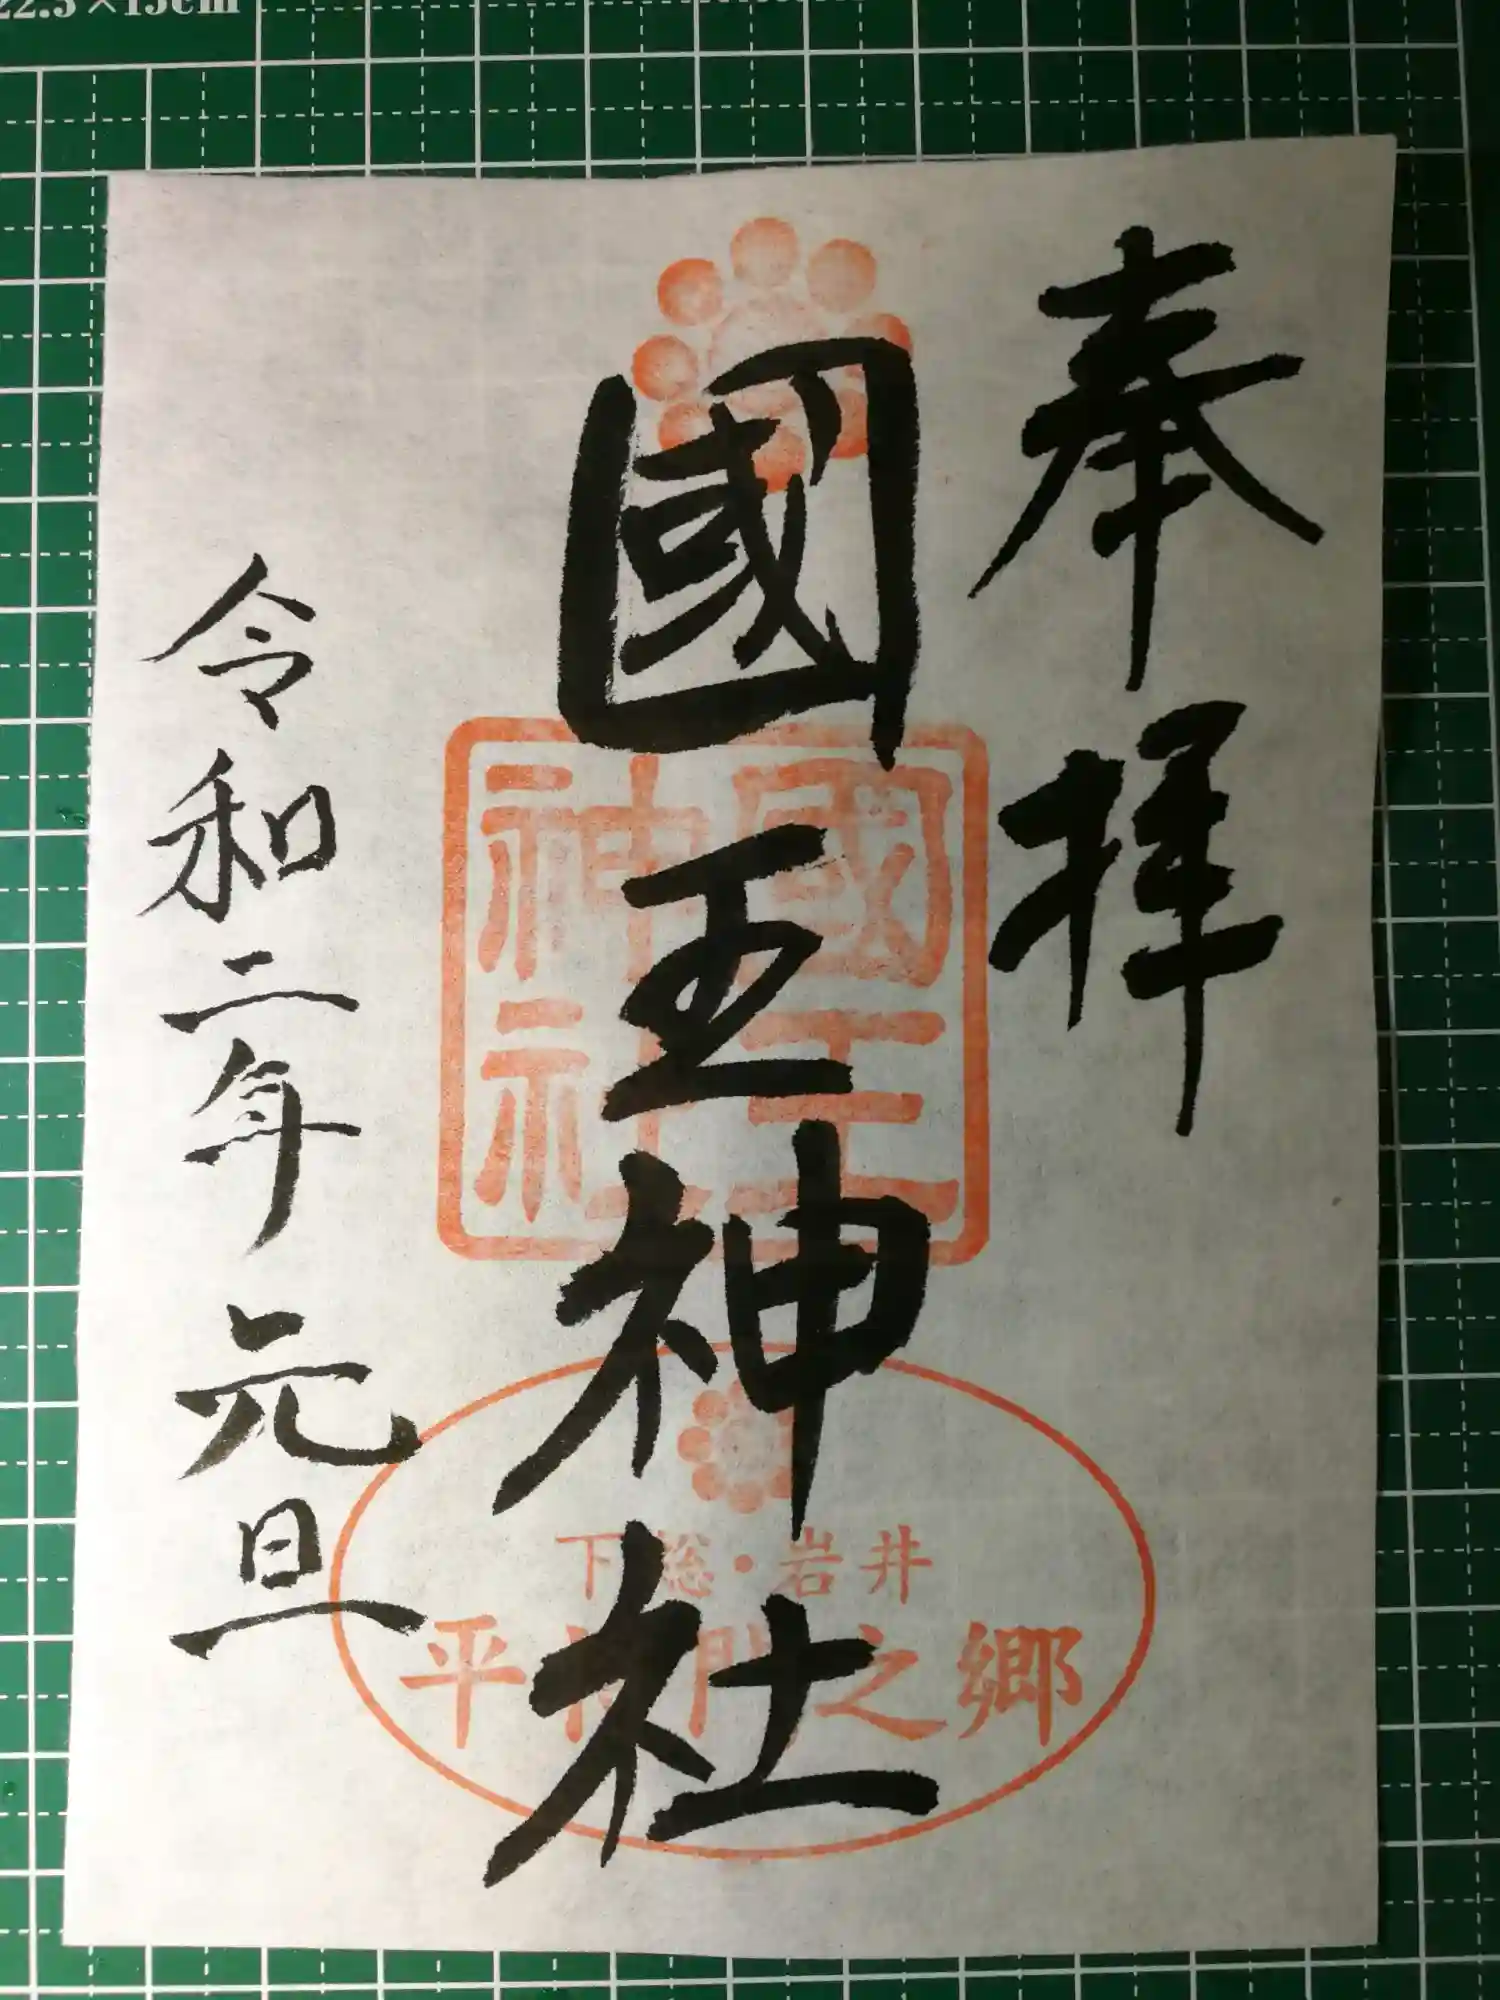 22.5×15cm
奉拝
國王神社
國王
神社
下総・岩井
平将門之郷
令和二年 元旦